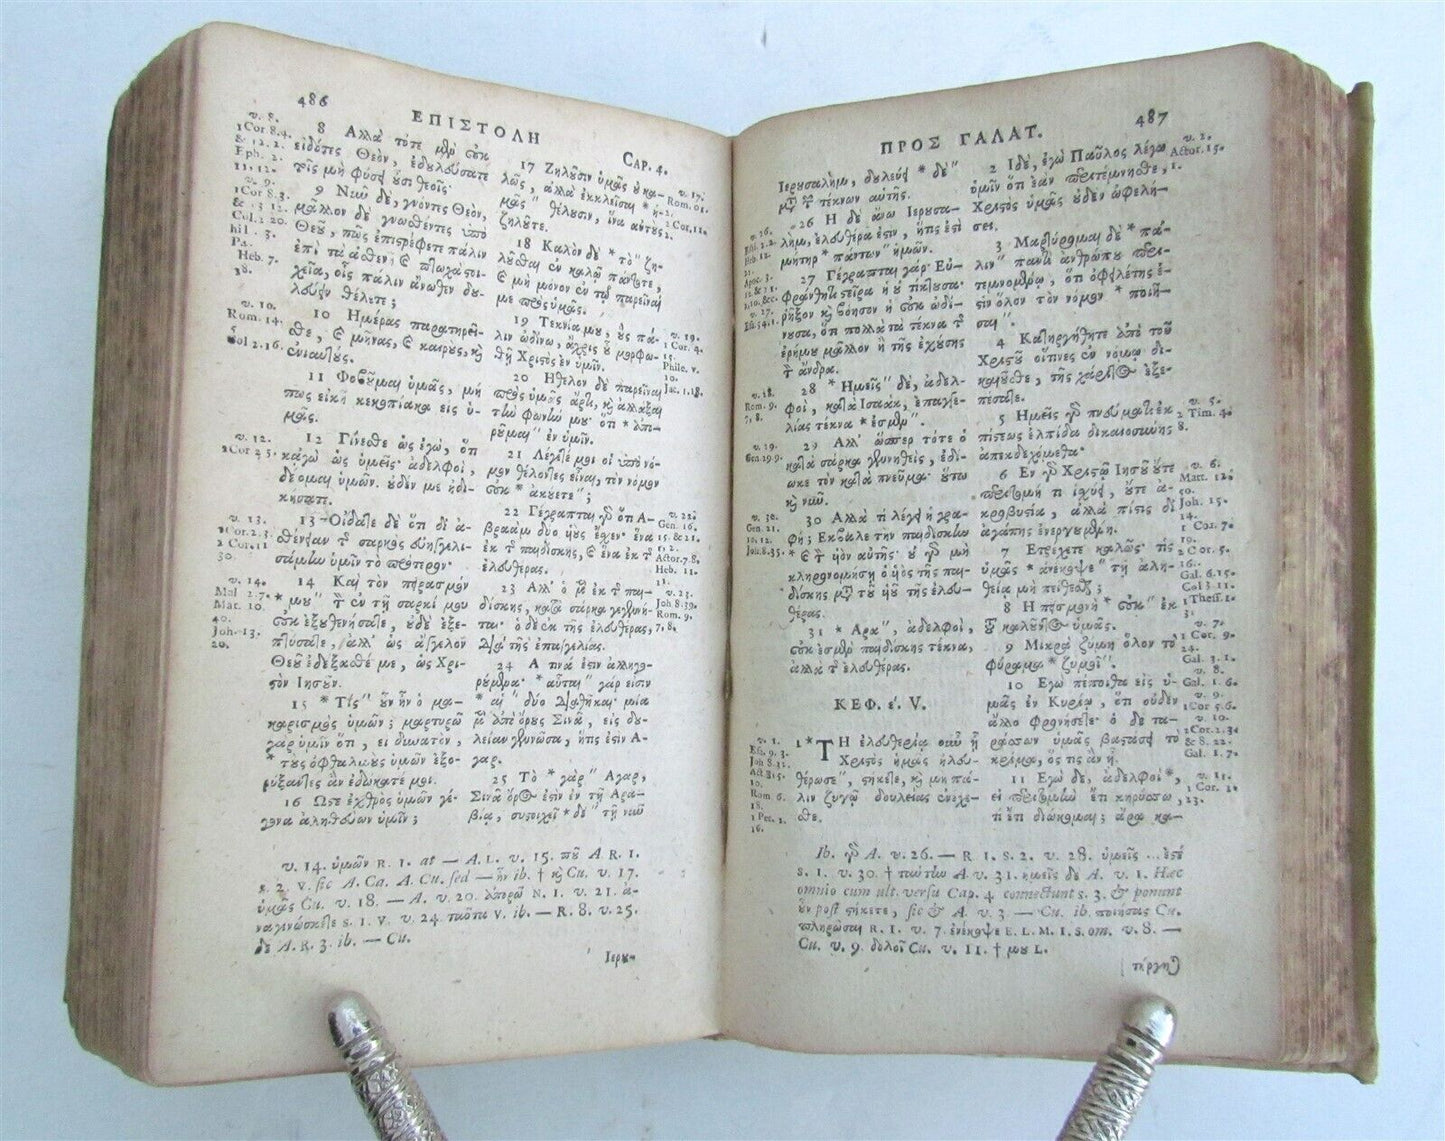 486
ΕΠΙΣΤΟΛΗ
CAP. 4.
8 Ἀλλὰ τότε μὲν οὐκ
εἰδότες Θεὸν, ἐδουλεύσατε
τοῖς μὴ φύσει οὖσι θεοῖς·
9 Νῦν δὲ, γνόντες Θεὸν,
μᾶλλον δὲ γνωσθέντες ὑπὸ
Θεοῦ, πῶς ἐπιστρέφετε πάλιν
ἐπὶ τὰ ἀσθενῆ καὶ πτωχὰ στοι-
χεῖα, οἷς πάλιν ἄνωθεν δου-
λεύειν θέλετε;
10 Ἡμέρας παρατηρεῖ-
σθε, καὶ μῆνας, καὶ καιροὺς, καὶ
ἐνιαυτούς.
11 Φοβοῦμαι ὑμᾶς, μή
πως εἰκῆ κεκοπίακα εἰς ὑ-
μᾶς.
12 Γίνεσθε ὡς ἐγὼ, ὅτι
κἀγὼ ὡς ὑμεῖς· ἀδελφοὶ,
δέομαι ὑμῶν. οὐδέν με ἠδι-
κήσατε.
13 Οἴδατε δὲ ὅτι δι' ἀ-
σθένειαν τῆς σαρκὸς εὐηγγελι-
σάμην ὑμῖν τὸ πρότερον·
14 Καὶ τὸν πειρασμόν
* μου " τὸν ἐν τῇ σαρκί μου
οὐκ ἐξουθενήσατε, οὐδὲ ἐξε-
πτύσατε, ἀλλ' ὡς ἄγγελον
Θεοῦ ἐδέξασθέ με, ὡς Χρι-
στὸν Ἰησοῦν.
15 * Τίς " οὖν ἦν ὁ μα-
καρισμὸς ὑμῶν; μαρτυρῶ
γὰρ ὑμῖν ὅτι, εἰ δυνατὸν,
* τοὺς ὀφθαλμοὺς ὑμῶν ἐξο-
ρύξαντες ἂν ἐδώκατέ μοι.
16 Ὥστε ἐχθρὸς ὑμῶν γέ-
γονα ἀληθεύων ὑμῖν;
17 Ζηλοῦσιν ὑμᾶς οὐ κα-
λῶς, ἀλλὰ ἐκκλεῖσαι * ἡ-
μᾶς " θέλουσιν, ἵνα αὐτοὺς
ζηλοῦτε.
18 Καλὸν δὲ * τὸ " ζη-
λοῦσθαι ἐν καλῷ πάντοτε,
καὶ μὴ μόνον ἐν τῷ παρεῖναί
με πρὸς ὑμᾶς.
19 Τεκνία μου, οὓς πά-
λιν ὠδίνω, ἄχρις οὗ μορφω-
θῇ Χριστὸς ἐν ὑμῖν.
20 Ἤθελον δὲ παρεῖναι
πρὸς ὑμᾶς ἄρτι, καὶ ἀλλάξαι
τὴν φωνήν μου· ὅτι * ἀπο-
ροῦμαι " ἐν ὑμῖν.
21 Λέγετέ μοι οἱ ὑπὸ νό-
μον θέλοντες εἶναι, τὸν νόμον
οὐκ * ἀκούετε";
22 Γέγραπται γὰρ ὅτι Ἀ-
βραὰμ δύο υἱοὺς ἔσχεν· ἕνα
ἐκ τῆς παιδίσκης, καὶ ἕνα ἐκ τῆς
ἐλευθέρας.
23 Ἀλλ' ὁ μὲν ἐκ τῆς παι-
δίσκης, κατὰ σάρκα γεγένη-
ται· ὁ δὲ ἐκ τῆς ἐλευθέρας,
διὰ τῆς ἐπαγγελίας.
24 Ἅ τινά ἐστιν ἀλληγο-
ρούμενα· * αὗται " γάρ εἰσιν
* αἱ " δύο διαθῆκαι· μία
μὲν ἀπὸ ὄρους Σινᾶ, εἰς δου-
λείαν γεννῶσα, ἥτις ἐστὶν Ἄ-
γαρ.
25 Τὸ * γὰρ " Ἄγαρ,
Σινᾶ ὄρος ἐστὶν ἐν τῇ Ἀρα-
βίᾳ, συστοιχεῖ * δὲ " τῇ νῦν
v. 14. ὑμῶν R. I. at — A. L. v. 15. ποῦ A R. I.
s. 2. V. sic A. Ca. A. Cu. sed — ἦν ib. † καὶ Cu. v. 17.
ὑμᾶς Cu. v. 18. — A. v. 20. ἀπορῶ N. I. v. 21. ἀ-
ναγνώσκετε S. I. V. v. 24. ταῦτα V. ib. — R. 8. v. 25.
δὲ A. R. 3. ib. — Cu.
Ἱερου-
487
ΠΡΟΣ ΓΑΛΑΤ.
Ἱερουσαλὴμ, δουλεύει * δὲ "
μετὰ τῶν τέκνων αὐτῆς.
26 Ἡ δὲ ἄνω Ἱερουσα-
λὴμ, ἐλευθέρα ἐστὶν, ἥτις ἐστὶ
μήτηρ * πάντων " ἡμῶν.
27 Γέγραπται γάρ· Εὐ-
φράνθητι στεῖρα ἡ οὐ τίκτουσα·
ῥῆξον καὶ βόησον ἡ οὐκ ὠδί-
νουσα, ὅτι πολλὰ τὰ τέκνα τῆς
ἐρήμου μᾶλλον ἢ τῆς ἐχούσης
τὸν ἄνδρα.
28 * Ἡμεῖς " δὲ, ἀδελ-
φοὶ, κατὰ Ἰσαὰκ, ἐπαγγε-
λίας τέκνα * ἐσμέν ".
29 Ἀλλ' ὥσπερ τότε ὁ
κατὰ σάρκα γεννηθεὶς, ἐδί-
ωκε τὸν κατὰ πνεῦμα· οὕτω
καὶ νῦν.
30 Ἀλλὰ τί λέγει ἡ γρα-
φή; Ἔκβαλε τὴν παιδίσκην
* καὶ τὸν υἱὸν αὐτῆς· οὐ γὰρ μὴ
κληρονομήσῃ ὁ υἱὸς τῆς παι-
δίσκης μετὰ τοῦ υἱοῦ τῆς ἐλευ-
θέρας.
31 * Ἄρα ", ἀδελφοὶ,
οὐκ ἐσμὲν παιδίσκης τέκνα,
ἀλλὰ τῆς ἐλευθέρας.
ΚΕΦ. ε'. V.
1 * ΤΗ ἐλευθερίᾳ οὖν ᾗ
Χριστὸς ἡμᾶς ἠλευ-
θέρωσε ", στήκετε, καὶ μὴ πά-
λιν ζυγῷ δουλείας ἐνέχε-
σθε.
2 Ἴδε, ἐγὼ Παῦλος λέγω
ὑμῖν ὅτι ἐὰν περιτέμνησθε,
Χριστὸς ὑμᾶς οὐδὲν ὠφελή-
σει.
3 Μαρτύρομαι δὲ * πά-
λιν " παντὶ ἀνθρώπῳ περι-
τεμνομένῳ, ὅτι ὀφειλέτης ἐ-
στὶν ὅλον τὸν νόμον * ποιῆ-
σαι ".
4 Κατηργήθητε ἀπὸ τοῦ
Χριστοῦ οἵτινες ἐν νόμῳ δι-
καιοῦσθε, τῆς χάριτος ἐξε-
πέσατε.
5 Ἡμεῖς γὰρ πνεύματι ἐκ
πίστεως ἐλπίδα δικαιοσύνης
ἀπεκδεχόμεθα·
6 Ἐν γὰρ Χριστῷ Ἰησοῦ οὔτε
περιτομή τι ἰσχύει, οὔτε ἀ-
κροβυστία, ἀλλὰ πίστις δι'
ἀγάπης ἐνεργουμένη.
7 Ἐτρέχετε καλῶς· τίς
ὑμᾶς * ἀνέκοψε " τῇ ἀλη-
θείᾳ μὴ πείθεσθαι;
8 Ἡ πεισμονὴ * οὐκ " ἐκ
τοῦ καλοῦντος ὑμᾶς.
9 Μικρὰ ζύμη ὅλον τὸ
φύραμα * ζυμοῖ ".
10 Ἐγὼ πέποιθα εἰς ὑ-
μᾶς ἐν Κυρίῳ, ὅτι οὐδὲν
ἄλλο φρονήσετε· ὁ δὲ τα-
ράσσων ὑμᾶς βαστάσει τὸ
κρίμα, ὅς τις ἂν ᾖ.
11 Ἐγὼ δὲ, ἀδελφοὶ *,
εἰ περιτομὴν ἔτι κηρύσσω,
τί ἔτι διώκομαι; ἄρα κα-
Ib. γὰρ A. v. 26. — R. I. S. 2. v. 28. ὑμεῖς ... ἐστέ
S. I. v. 30. † ταύτην A v. 31. ἡμεῖς δὲ A. v. 1. Hæc
omnio cum ult. versu Cap. 4 connectunt s. 3. & ponunt
οὖν post στήκετε, sic & A. v. 3. — Cu. ib. ποιήσας Cu.
πληρῶσαι R. I. v. 7. ἐνέκοψε E. L. M. I. S. om. v. 8. —
Cu. v. 9. δολοῖ Cu. v. 11. † μου L.
τήργη